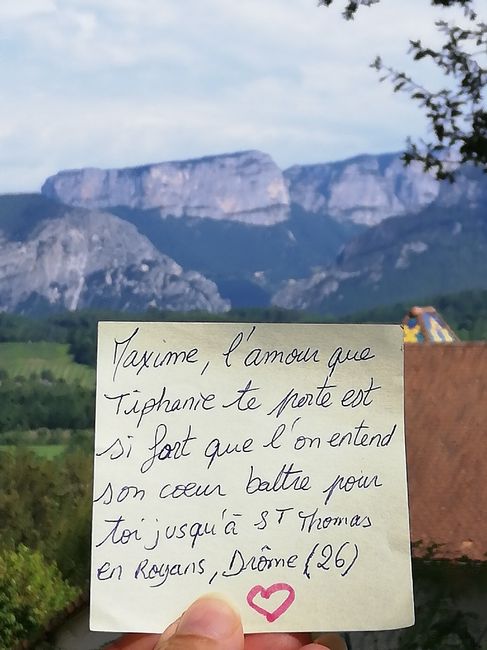 Maxime, l'amour que
Tiphanie te porte est
si fort que l'on entend
son coeur battre pour
toi jusqu'à ST Thomas
en Royans, Drôme (26)